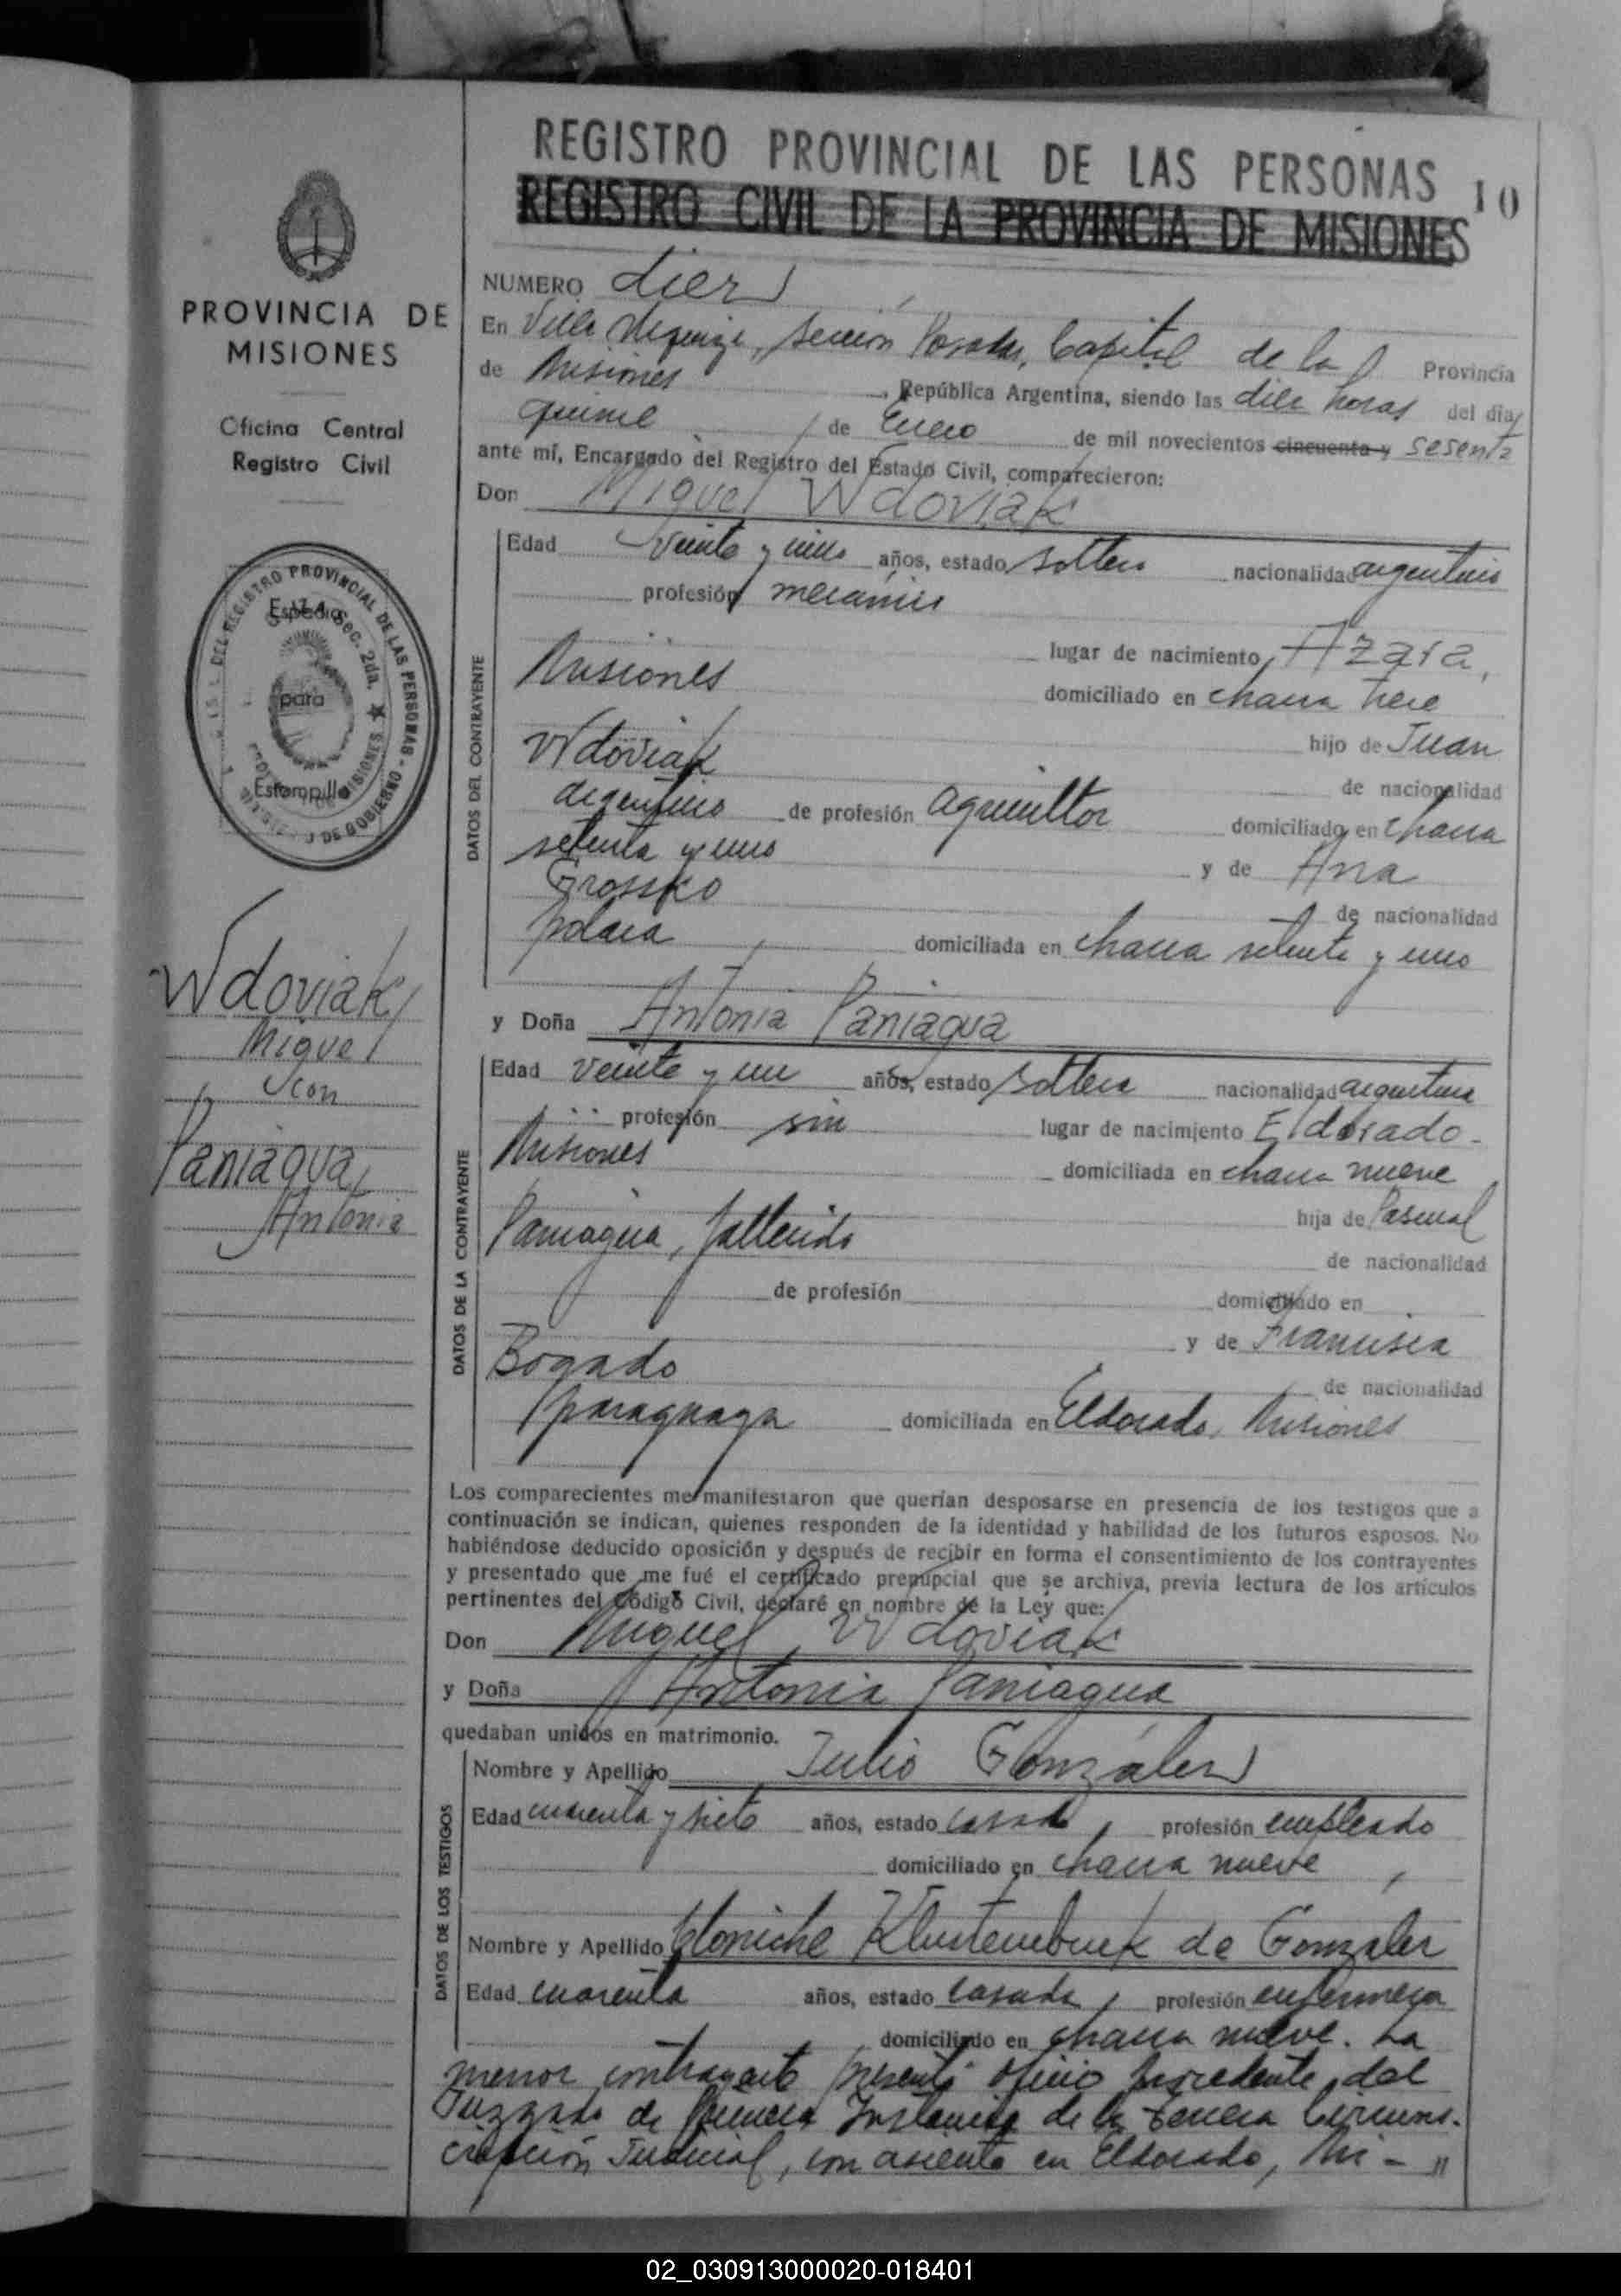 REGISTRO PROVINCIAL DE LAS PERSONAS
10
REGISTRO CIVIL DE LA PROVINCIA DE MISIONES
PROVINCIA DE
MISIONES
Oficina Central
Registro Civil
Espacio
para
Estampilla
Wdoviak
Miguel
con
Paniagua,
Antonia
NUMERO diez
En Villa Urquiza, Sección Posadas, Capital de la Provincia
de Misiones, República Argentina, siendo las diez horas del día
quince de Enero de mil novecientos cincuenta y sesenta
ante mí, Encargado del Registro del Estado Civil, comparecieron:
Don Miguel Wdoviak
DATOS DEL CONTRAYENTE
Edad veinte y uno años, estado soltero nacionalidad argentino
profesión mecánico
lugar de nacimiento Azara,
Misiones domiciliado en chacra trece
hijo de Juan
Wdoviak de nacionalidad
argentino de profesión agricultor domiciliado en chacra
setenta y uno y de Ana
Grossko de nacionalidad
polaca domiciliada en chacra setenta y uno
y Doña Antonia Paniagua
DATOS DE LA CONTRAYENTE
Edad veinte y un años, estado soltera nacionalidad argentina
profesión sin lugar de nacimiento Eldorado-
Misiones domiciliada en chacra nueve
hija de Pascual
Paniagua, fallecido de nacionalidad
de profesión domiciliado en
y de Francisca
Bogado de nacionalidad
paraguaya domiciliada en Eldorado, Misiones
Los comparecientes me manifestaron que querían desposarse en presencia de los testigos que a
continuación se indican, quienes responden de la identidad y habilidad de los futuros esposos. No
habiéndose deducido oposición y después de recibir en forma el consentimiento de los contrayentes
y presentado que me fué el certificado prenupcial que se archiva, previa lectura de los artículos
pertinentes del Código Civil, declaré en nombre de la Ley que:
Don Miguel Wdoviak
y Doña Antonia Paniagua
quedaban unidos en matrimonio.
DATOS DE LOS TESTIGOS
Nombre y Apellido Julio González
Edad cuarenta y siete años, estado casado, profesión empleado
domiciliado en chacra nueve,
Nombre y Apellido de Gonzalez
Edad cuarenta años, estado casada, profesión enfermera
domiciliado en chacra nueve. La
menor contrayente presentó oficio procedente del
Juzgado de Primera Instancia de la tercera Circuns-
cripción Judicial, con asiento en Eldorado, Mi-"
02_030913000020-018401